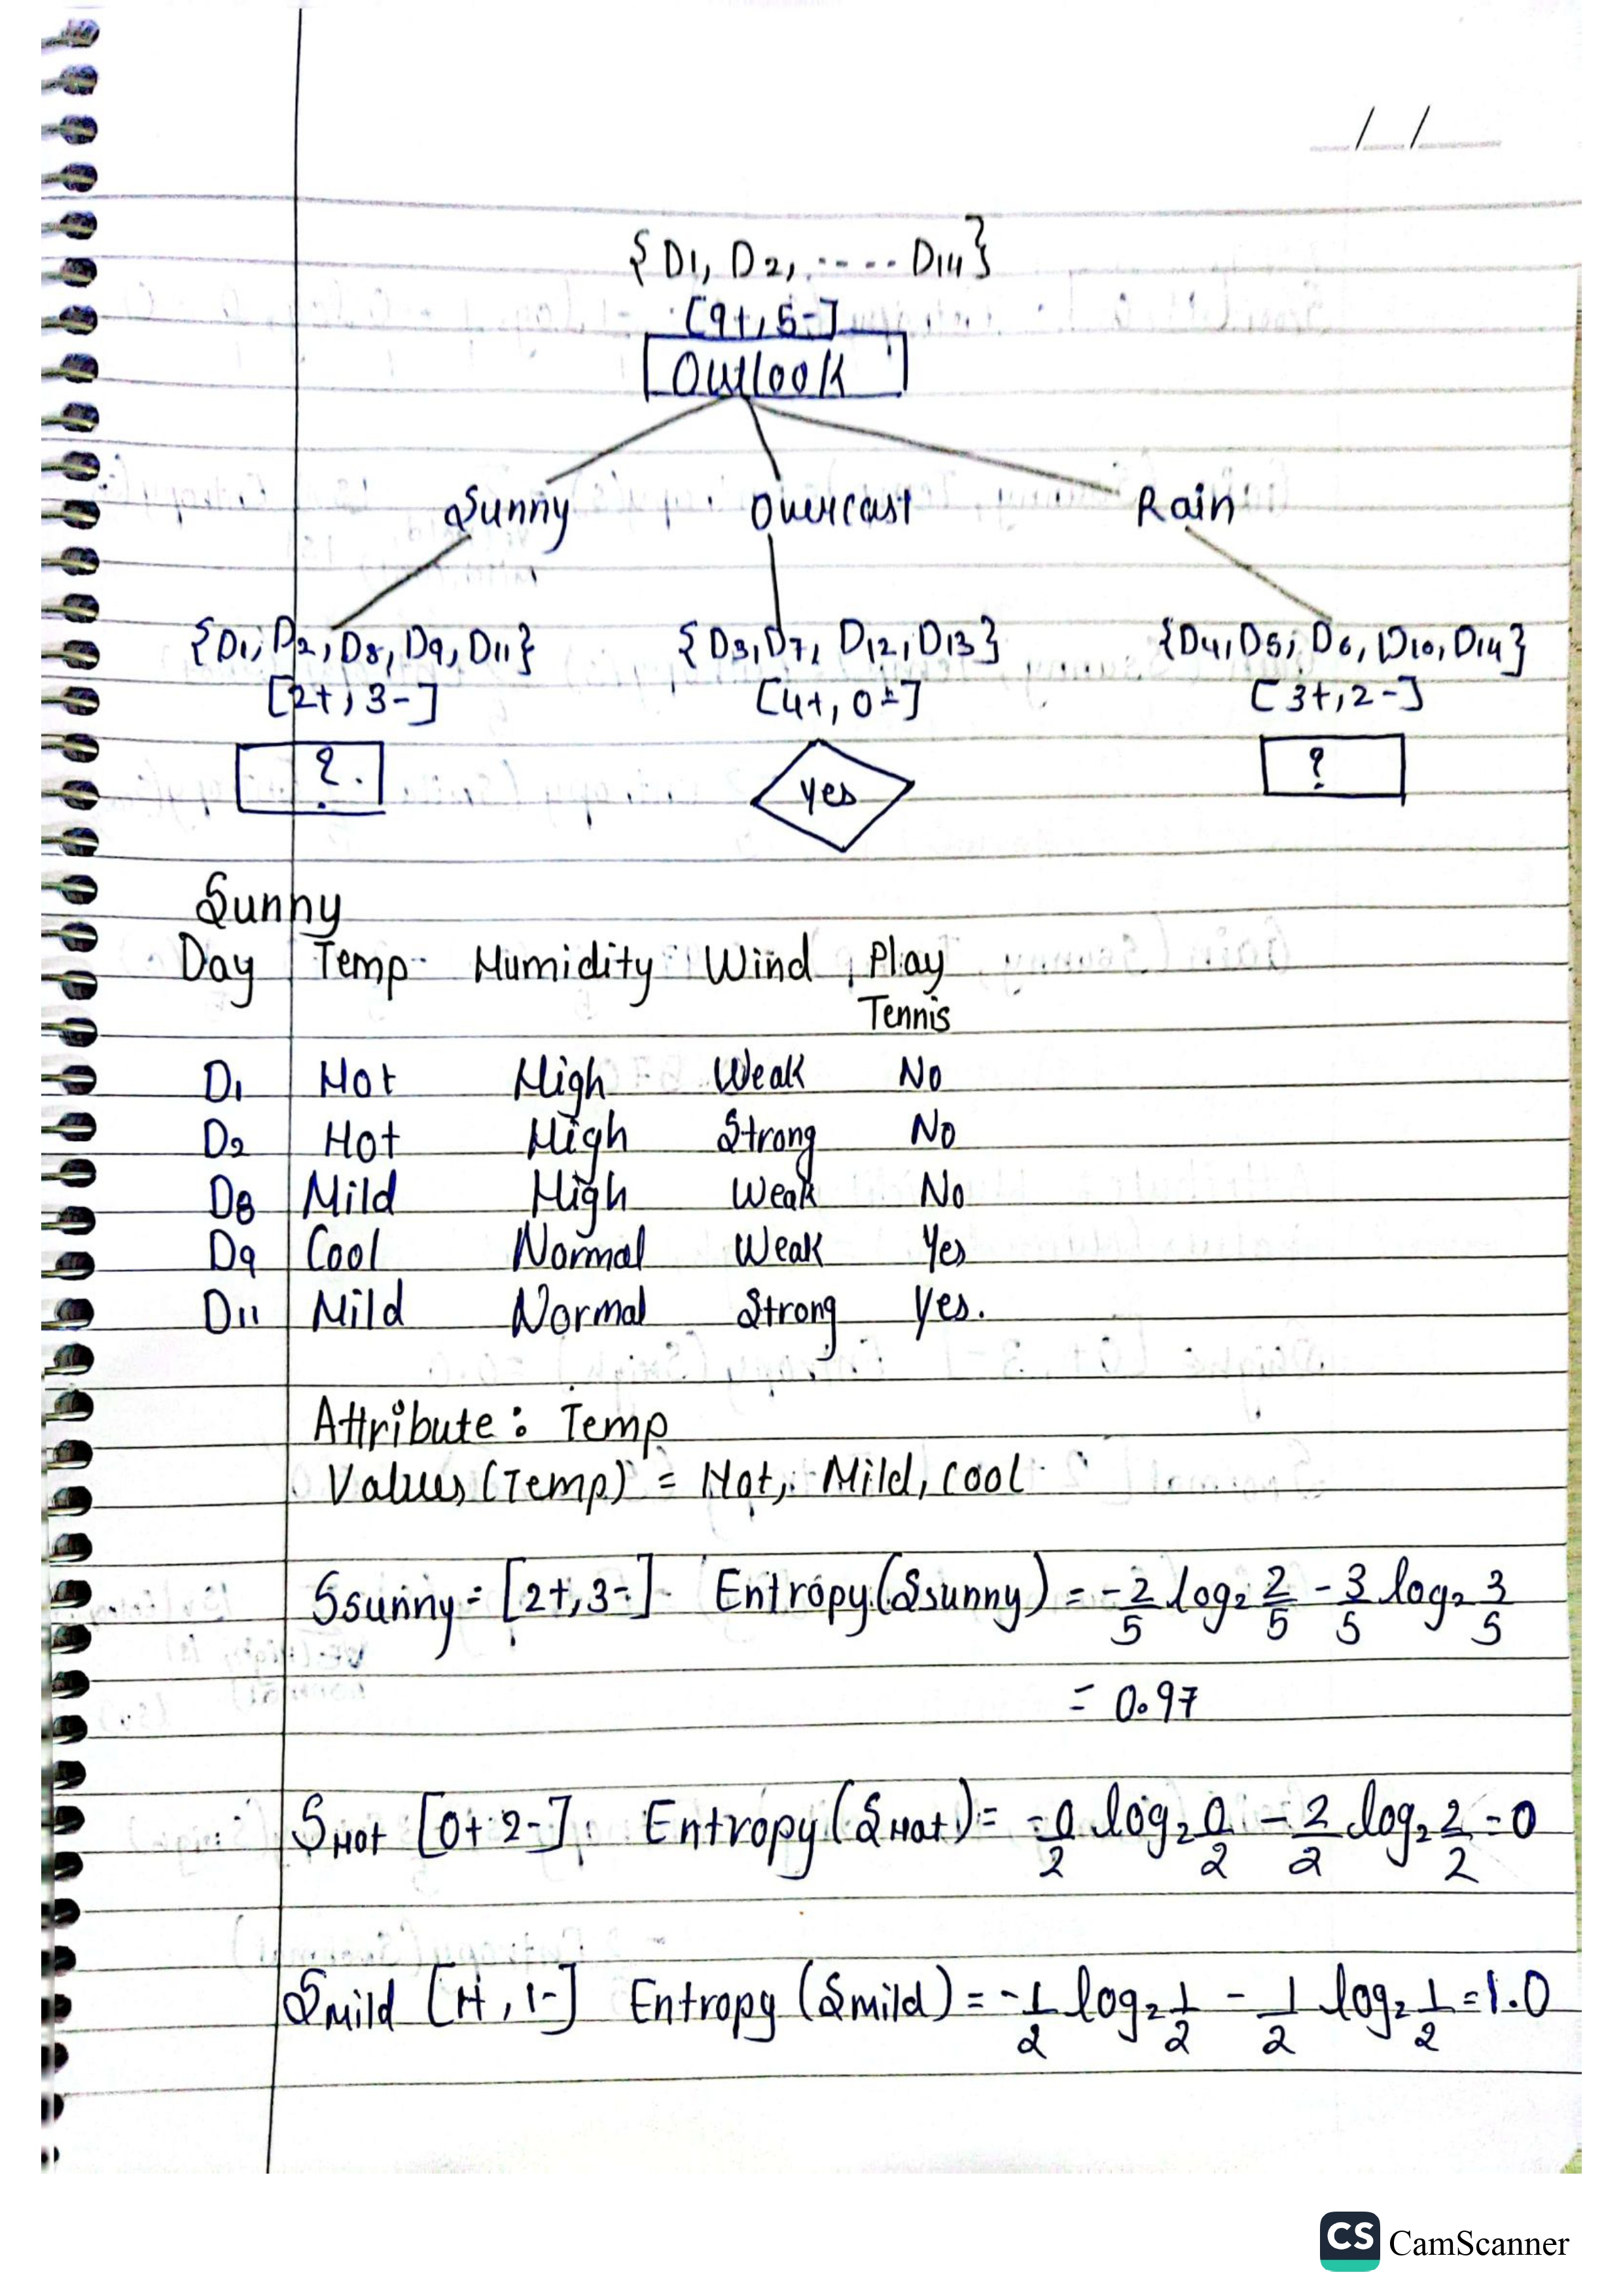 __/__/____
{D1, D2, ---- D14}
[9+, 5-]
Outlook
Sunny Overcast Rain
{D1, D2, D8, D9, D11} {D3, D7, D12, D13} {D4, D5, D6, D10, D14}
[2+, 3-] [4+, 0-] [3+, 2-]
? . yes ?
Sunny
Day Temp Humidity Wind Play
Tennis
D1 Hot High Weak No
D2 Hot High Strong No
D8 Mild High Weak No
D9 Cool Normal Weak Yes
D11 Mild Normal Strong Yes.
Attribute : Temp
Values (Temp) = Hot, Mild, Cool
Ssunny = [2+, 3-] Entropy (Ssunny) = -2/5 log2 2/5 - 3/5 log2 3/5
= 0.97
SHot [0+ 2-] Entropy (SHot) = -0/2 log2 0/2 - 2/2 log2 2/2 = 0
Smild [1+, 1-] Entropy (Smild) = -1/2 log2 1/2 - 1/2 log2 1/2 = 1.0
CS CamScanner